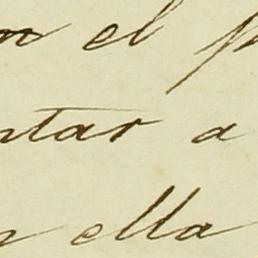 el
ntar a
ella